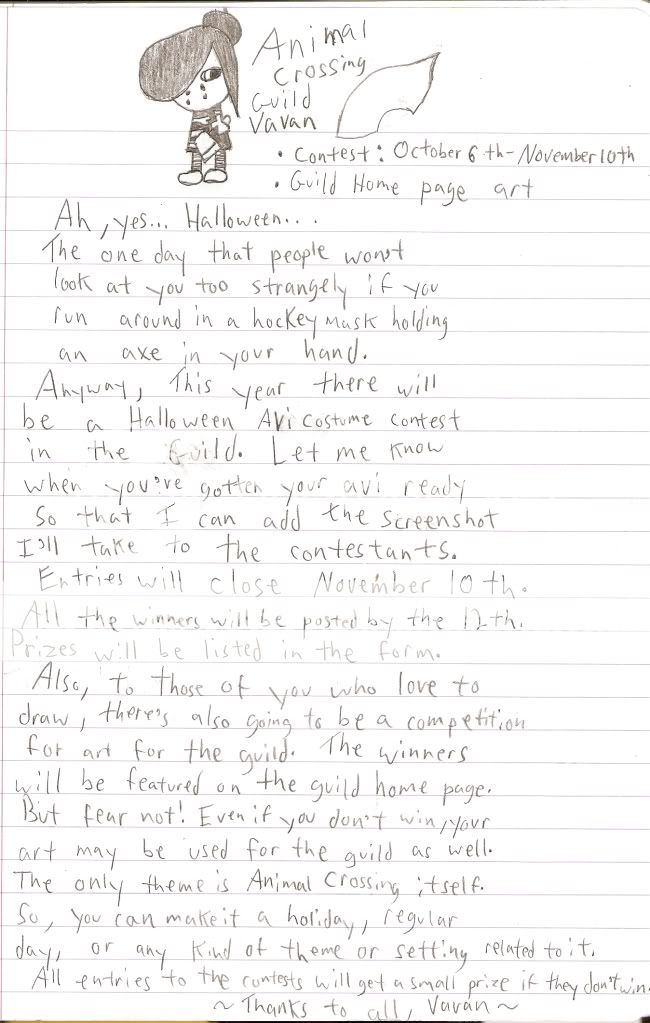 Animal
Crossing
Guild
Vavan
• Contest: October 6th-November 10th
• Guild Home page art
Ah, yes... Halloween...
The one day that people won't
look at you too strangely if you
run around in a hockey mask holding
an axe in your hand.
Anyway, This year there will
be a Halloween Avi costume contest
in the Guild. Let me know
when you've gotten your avi ready
So that I can add the screenshot
I'll take to the contestants.
Entries will close November 10th.
All the winners will be posted by the 12th.
Prizes will be listed in the form.
Also, to those of you who love to
draw, there's also going to be a competition
for art for the guild. The winners
will be featured on the guild home page.
But fear not! Even if you don't win, your
art may be used for the guild as well.
The only theme is Animal Crossing itself.
So, you can make it a holiday, regular
day, or any kind of theme or setting related to it.
All entries to the contests will get a small prize if they don't win.
~Thanks to all, Vavan~